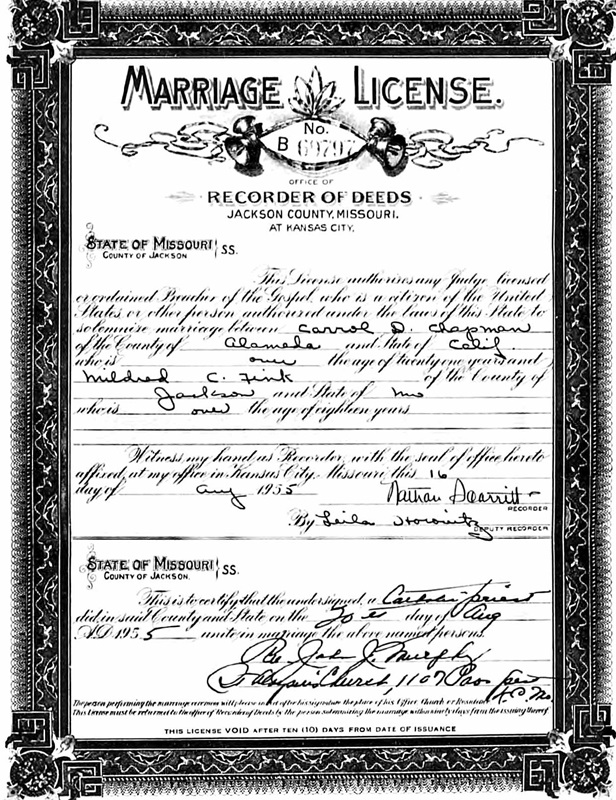 MARRIAGE LICENSE.
No.
B 69797
OFFICE OF
RECORDER OF DEEDS
JACKSON COUNTY, MISSOURI.
AT KANSAS CITY.
STATE OF MISSOURI
COUNTY OF JACKSON
SS.
This License authorizes any Judge licensed
or ordained Preacher of the Gospel, who is a citizen of the United
States or other person authorized under the laws of this State to
solemnize marriage between Carrol D. Chapman
of the County of Alameda and State of Calif.
who is over the age of twenty one years and
Mildred C. Fink of the County of
Jackson and State of Mo
who is over the age of eighteen years
Witness my hand as Recorder, with the seal of office hereto
affixed, at my office in Kansas City, Missouri this 16
day of Aug 1955
Nathan Scarritt
RECORDER
By Leila Horowitz
DEPUTY RECORDER
STATE OF MISSOURI
COUNTY OF JACKSON.
SS.
This is to certify that the undersigned, a Catholic priest
did, in said County and State on the 20th day of Aug
A.D. 1955 unite in marriage the above named persons.
Rev. John J. Murphy
Church, 1107
The person performing the marriage ceremony will please insert after his signature the place of his Office Church or Residence
This License must be returned to the office of Recorder of Deeds by the person solemnizing the marriage within ninety days from the issuing thereof
THIS LICENSE VOID AFTER TEN (10) DAYS FROM DATE OF ISSUANCE